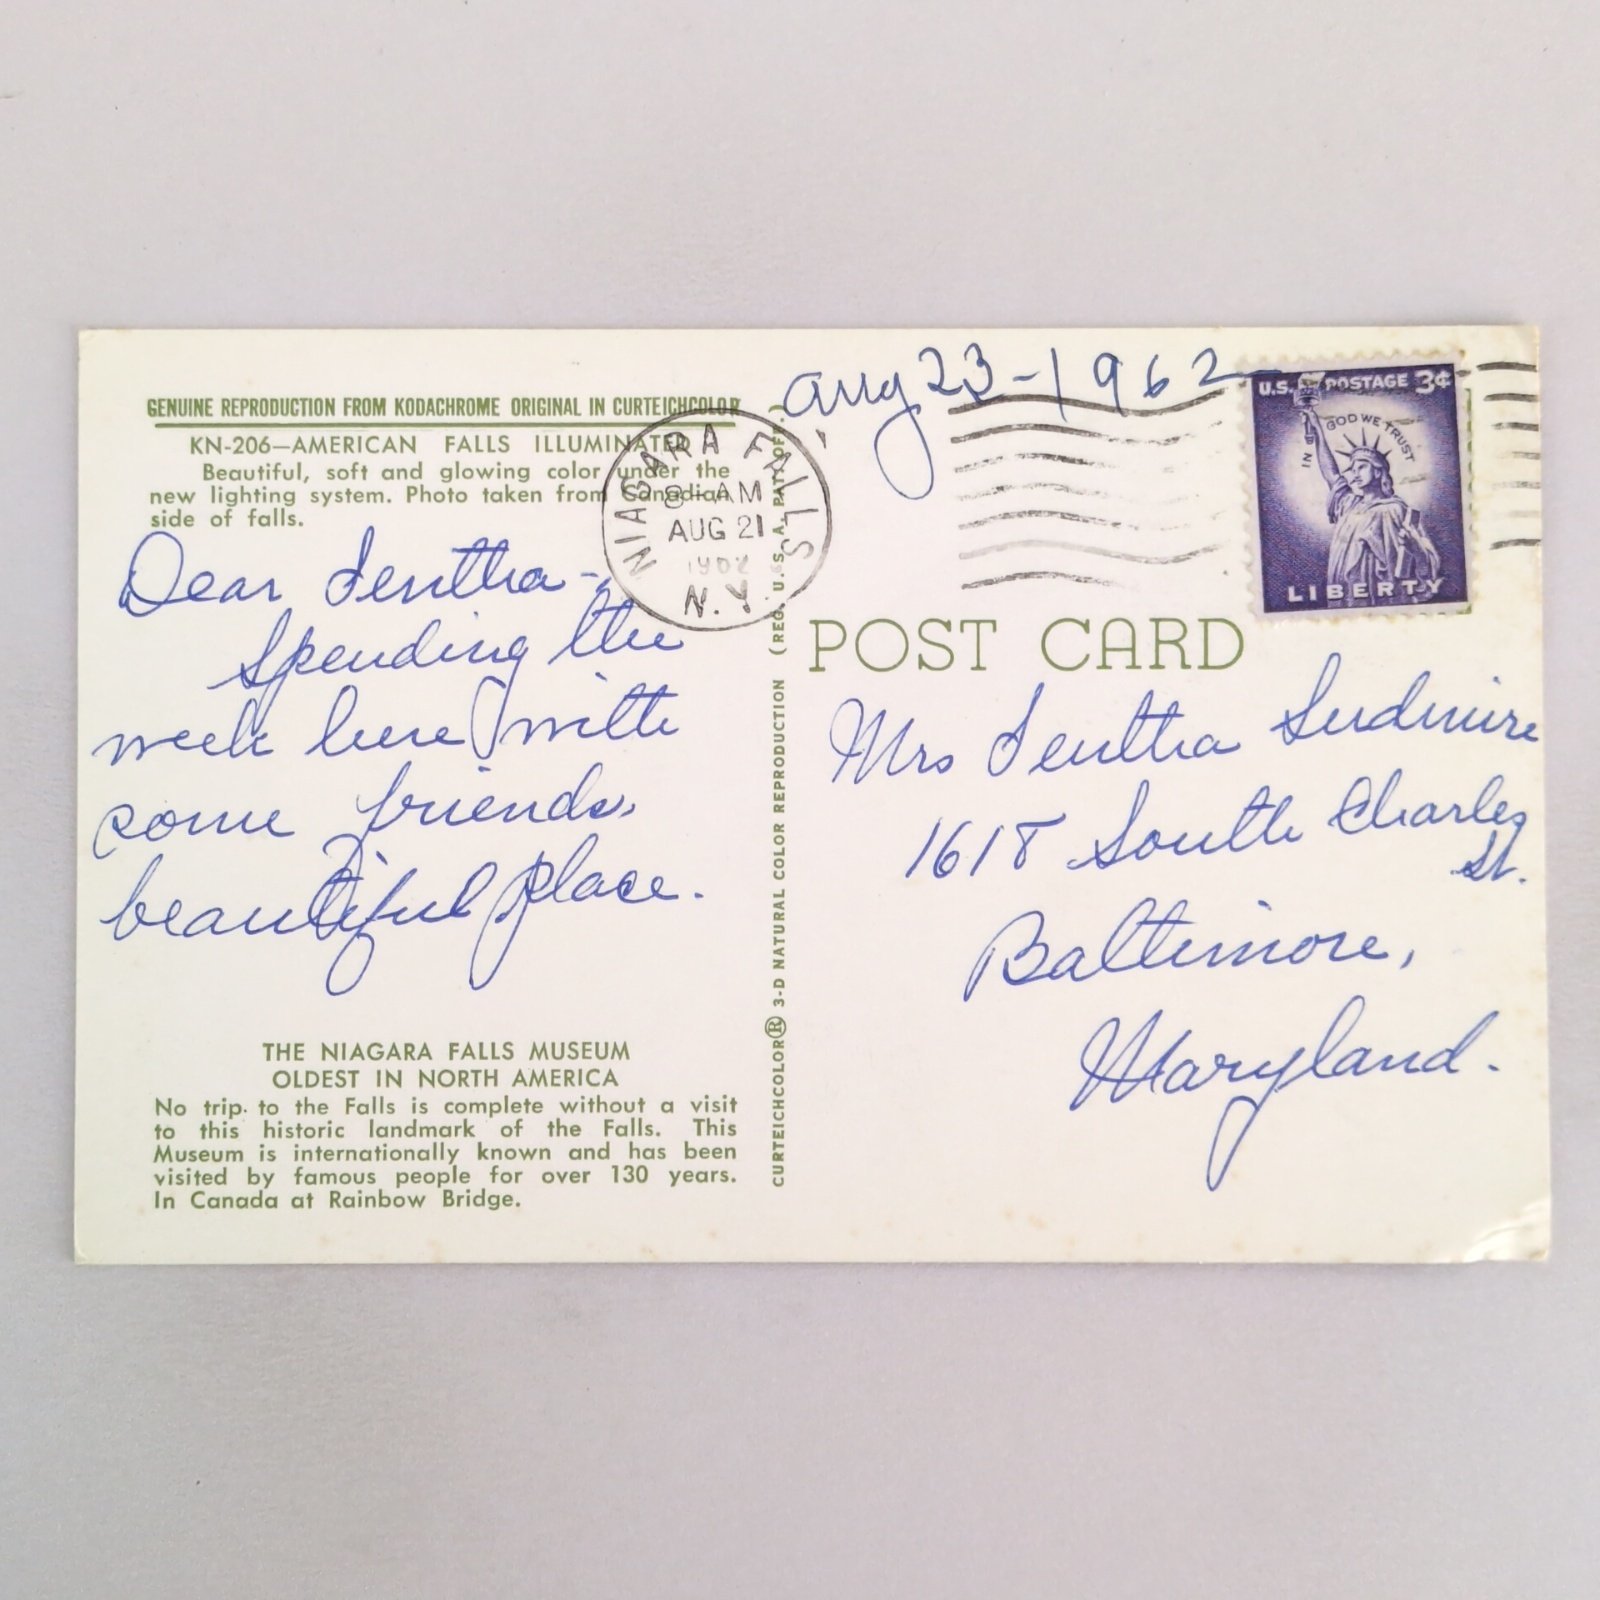 Aug 23-1962
GENUINE REPRODUCTION FROM KODACHROME ORIGINAL IN CURTEICHCOLOR
KN-206—AMERICAN FALLS ILLUMINATED
Beautiful, soft and glowing color under the
new lighting system. Photo taken from Canadian
side of falls.
Dear
Spending the
week here with
some friends.
beautiful place.
THE NIAGARA FALLS MUSEUM
OLDEST IN NORTH AMERICA
No trip to the Falls is complete without a visit
to this historic landmark of the Falls. This
Museum is internationally known and has been
visited by famous people for over 130 years.
In Canada at Rainbow Bridge.
NIAGARA FALLS
8-AM
AUG 21
1962
N.Y.
CURTEICHCOLOR® 3-D NATURAL COLOR REPRODUCTION (REG. U.S.A. PAT. OFF.)
U.S. POSTAGE 3¢
IN GOD WE TRUST
LIBERTY
POST CARD
Mrs
1618 South Charles
St.
Baltimore,
Maryland.